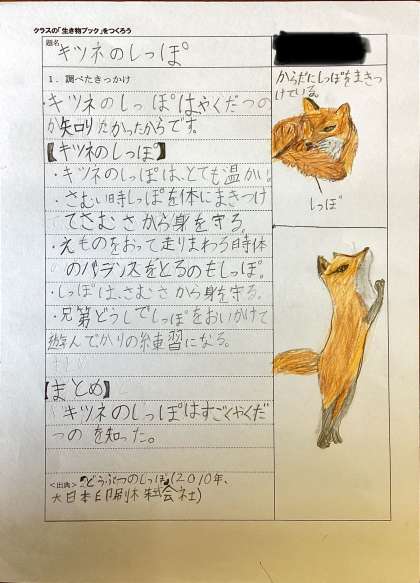 クラスの「生き物ブック」をつくろう
題名
キツネのしっぽ
1.調べたきっかけ
キツネのしっぽはやくだつの
か知りたかったからです。
【キツネのしっぽ】
・キツネのしっぽは、とても温かい。
・さむい時しっぽを体にまきつけ
てさむさから身を守る。
・えものをおって走りまわる時体
のバランスをとるのもしっぽ。
・しっぽは、さむさから身を守る。
・兄弟どうしでしっぽをおいかけて
遊んでかりの練習になる。
【まとめ】
キツネのしっぽはすごくやくだ
つのを知った。
<出典>どうぶつのしっぽ(2010年、
大日本印刷株式会社)
からだにしっぽをまきつ
けている。
しっぽ